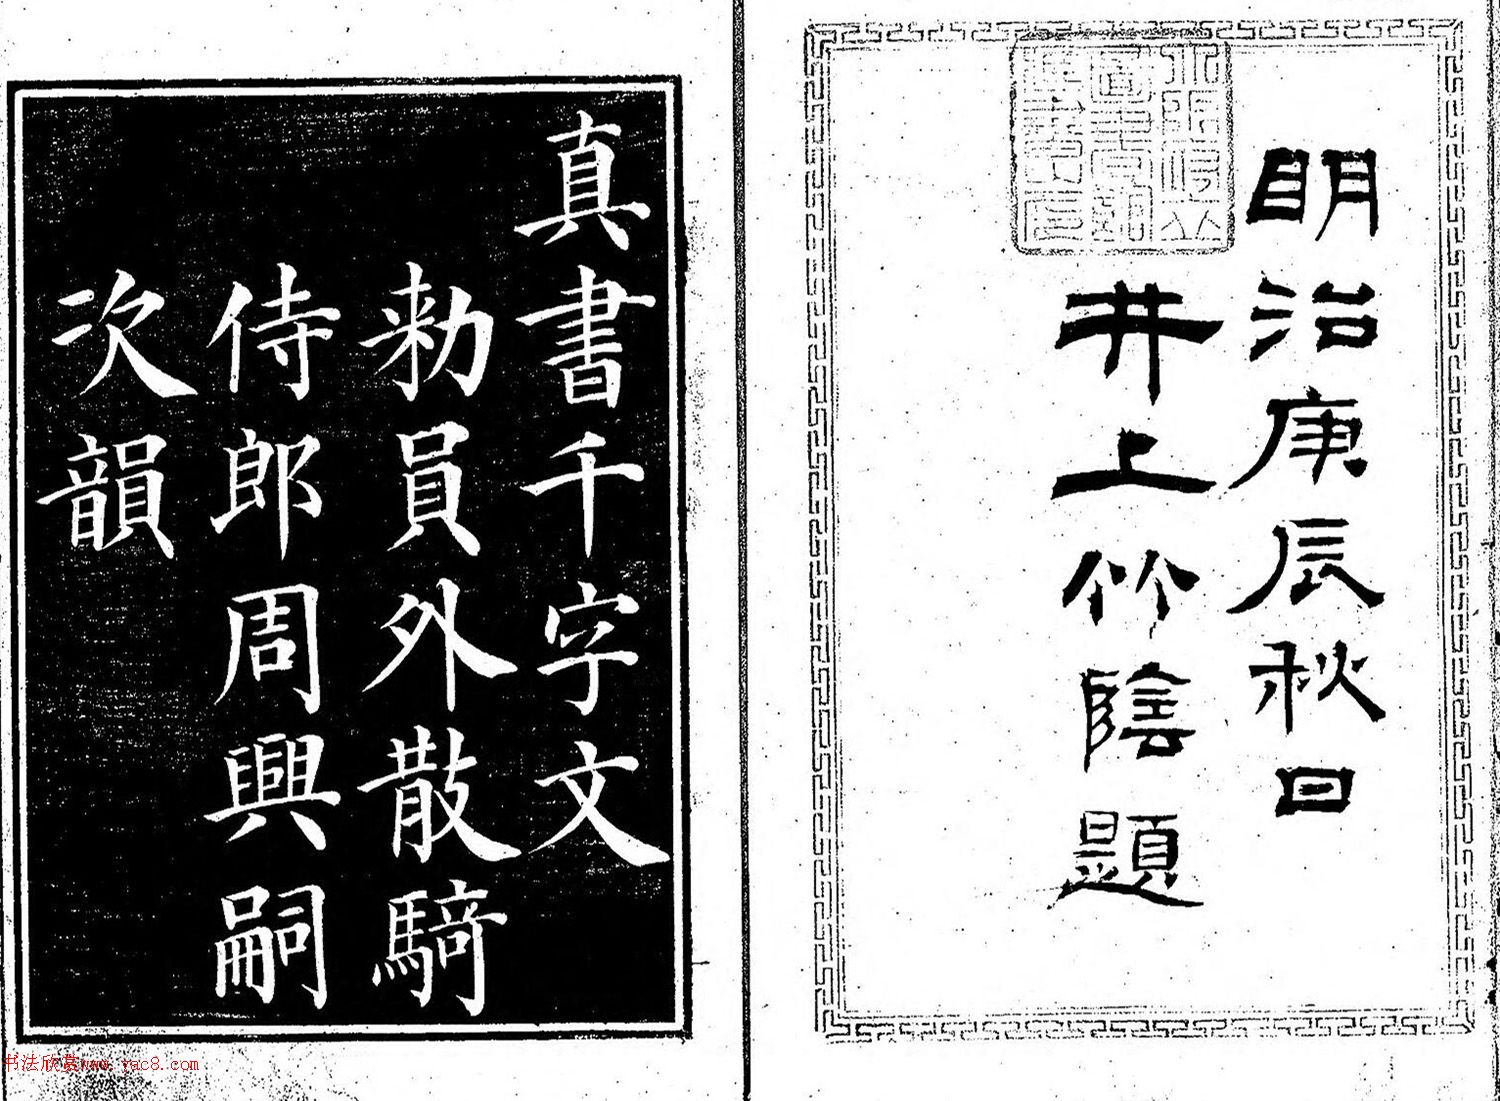 明治庚辰秋日
井上竹陰題
真書千字文
勑員外散騎
侍郎周興嗣
次韻
书法欣赏www.yac8.com